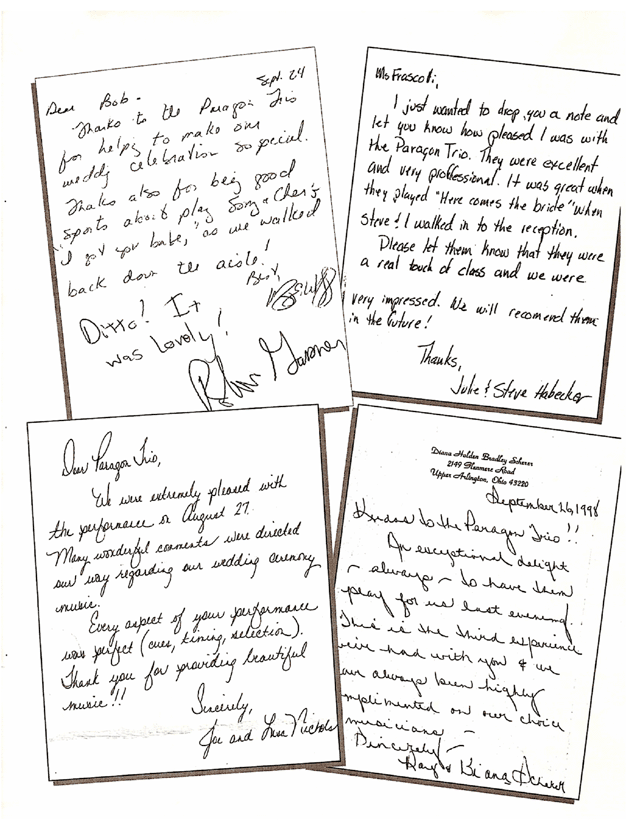 Sept. 24
Dear Bob -
Thanks to the Paragon Trio
for helping to make our
wedding celebration so special.
Thanks also for being good
sports about playing Sonny & Cher's
"I got you babe," as we walked
back down the aisle!
Best,
Ditto! It
was lovely!
Ms Frascolli,
I just wanted to drop you a note and
let you know how pleased I was with
the Paragon Trio. They were excellent
and very proffessional. It was great when
they played "Here comes the bride" when
Steve & I walked in to the reception.
Please let them know that they were
a real touch of class and we were
very impressed. We will recomend them
in the future!
Thanks,
Julie & Steve Habecker
Dear Paragon Trio,
We were extremely pleased with
the performance on August 27.
Many wonderful comments were directed
our way regarding our wedding ceremony
music.
Every aspect of your performance
was perfect (cues, timing, selection).
Thank you for providing beautiful
music!!
Sincerely,
Joe and Lisa Nichols
Diana Holden Bradley Scherer
2149 Glenmere Road
Upper Arlington, Ohio 43220
September 26, 1998
Kudos to the Paragon Trio!!
An exceptional delight
- always - to have them
play for us last evening.
This is the third experience
we've had with you & we
have always been highly
mplimented on our choice
musicians -
Sincerely -
Ray & Diana Scherer